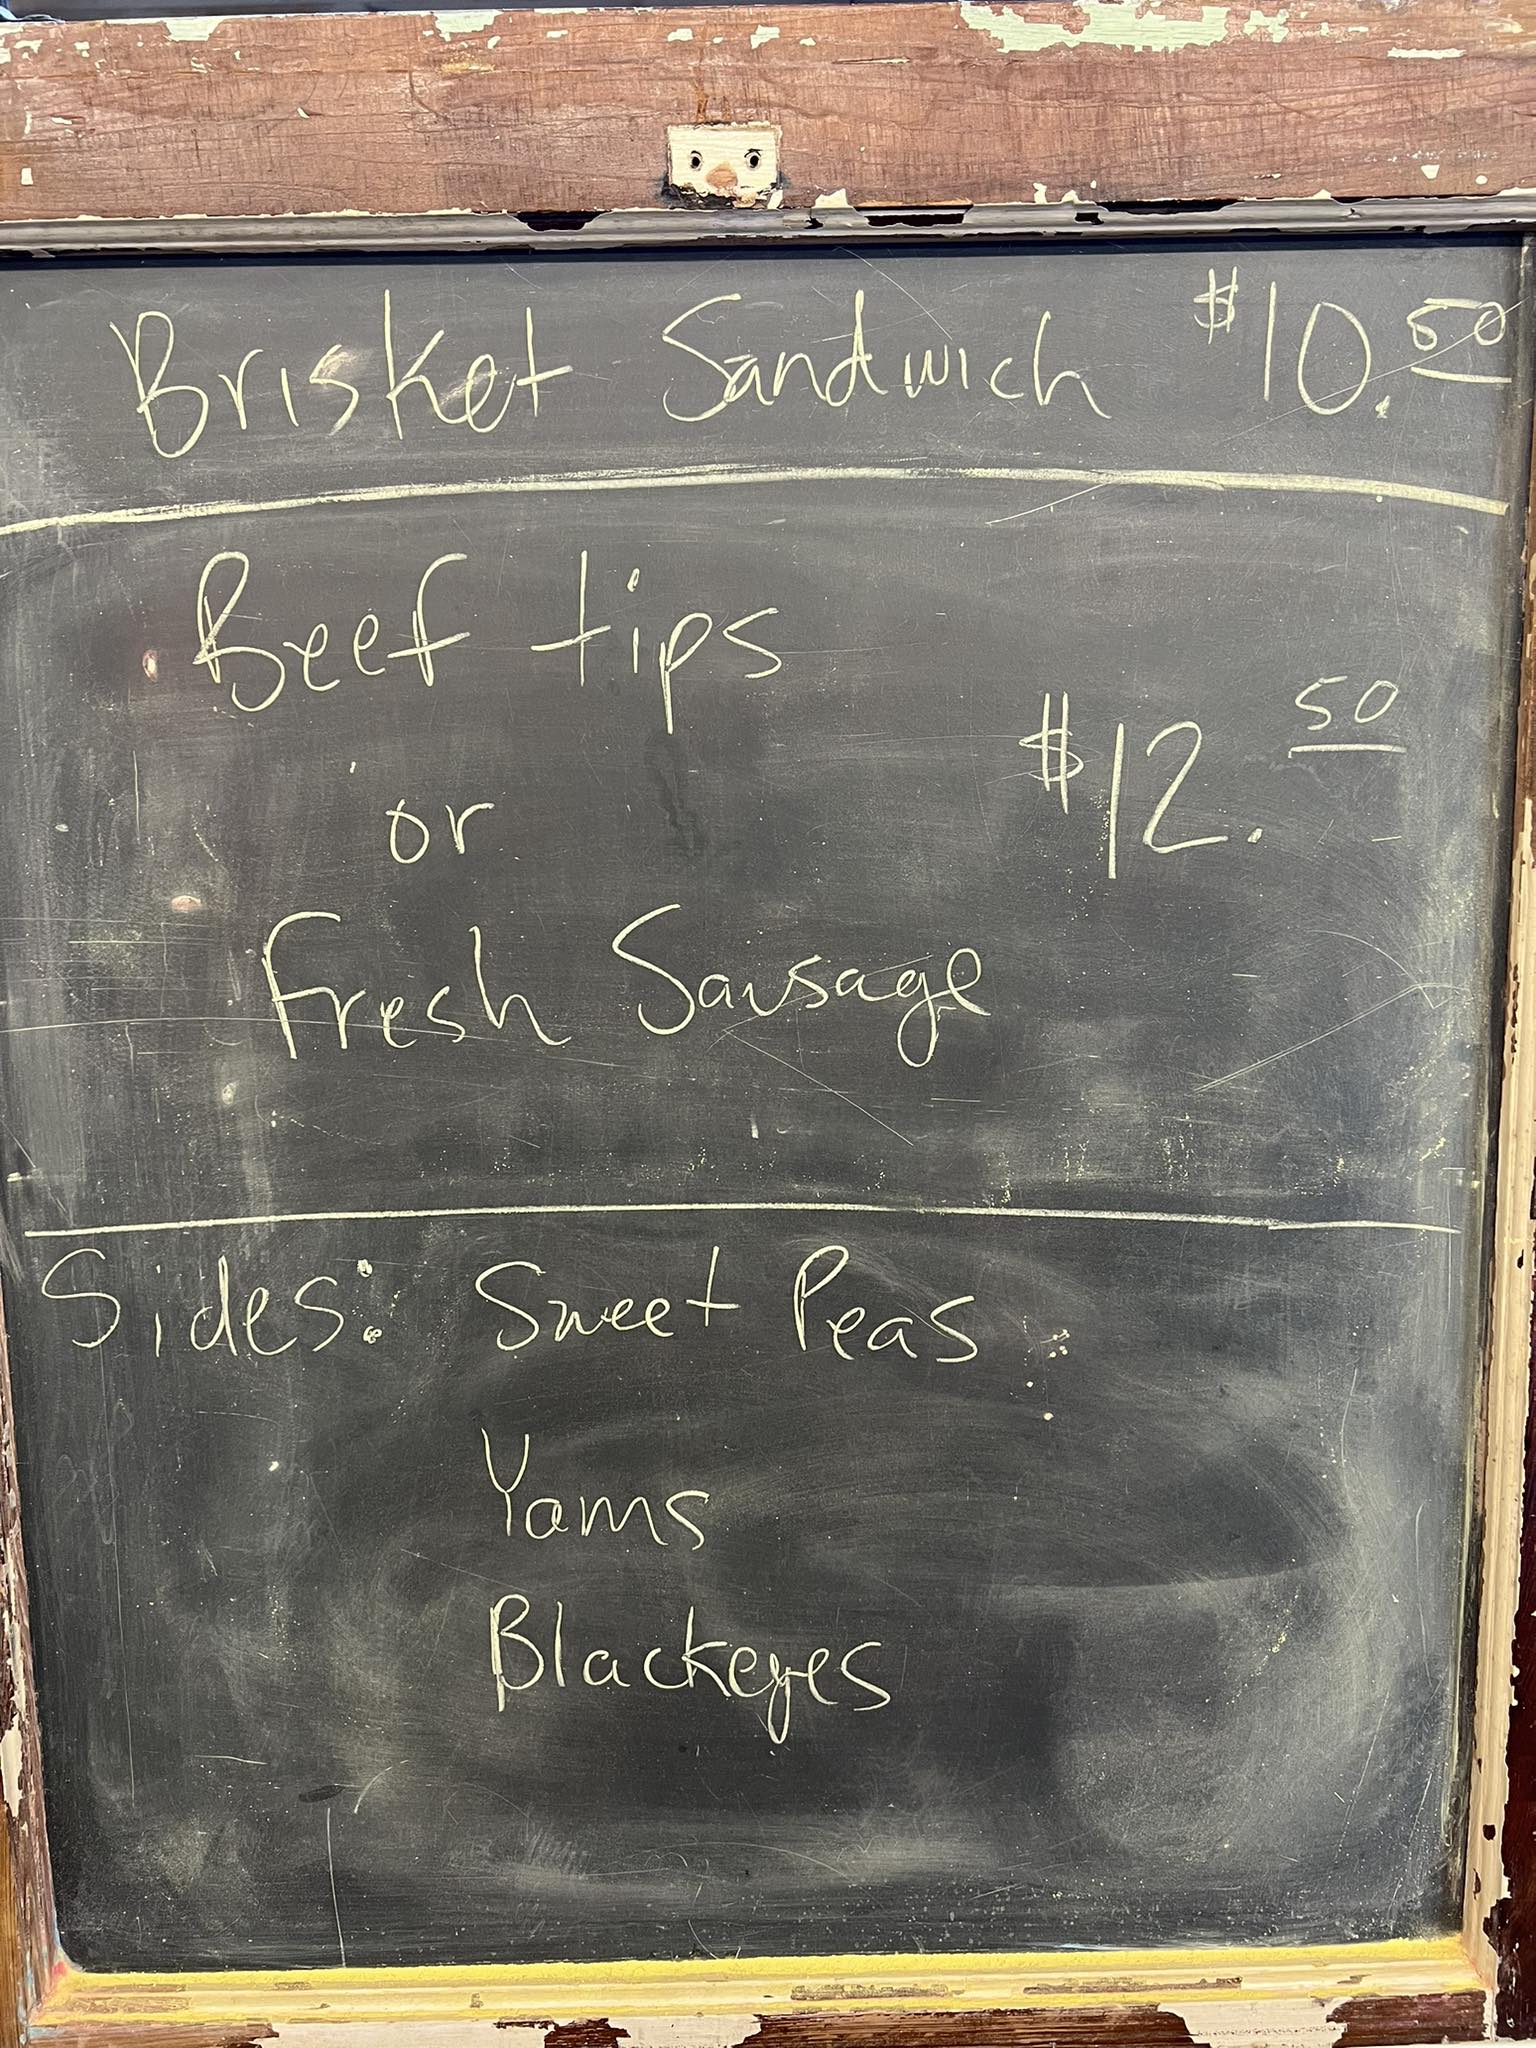 Brisket Sandwich $10.50
Beef tips
or
$12.50
Fresh Sausage
Sides: Sweet Peas
Yams
Blackeyes